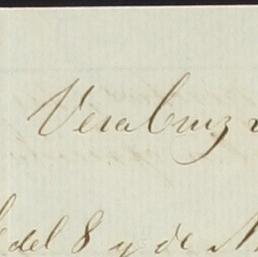 Vera Cruz
del 8 y de